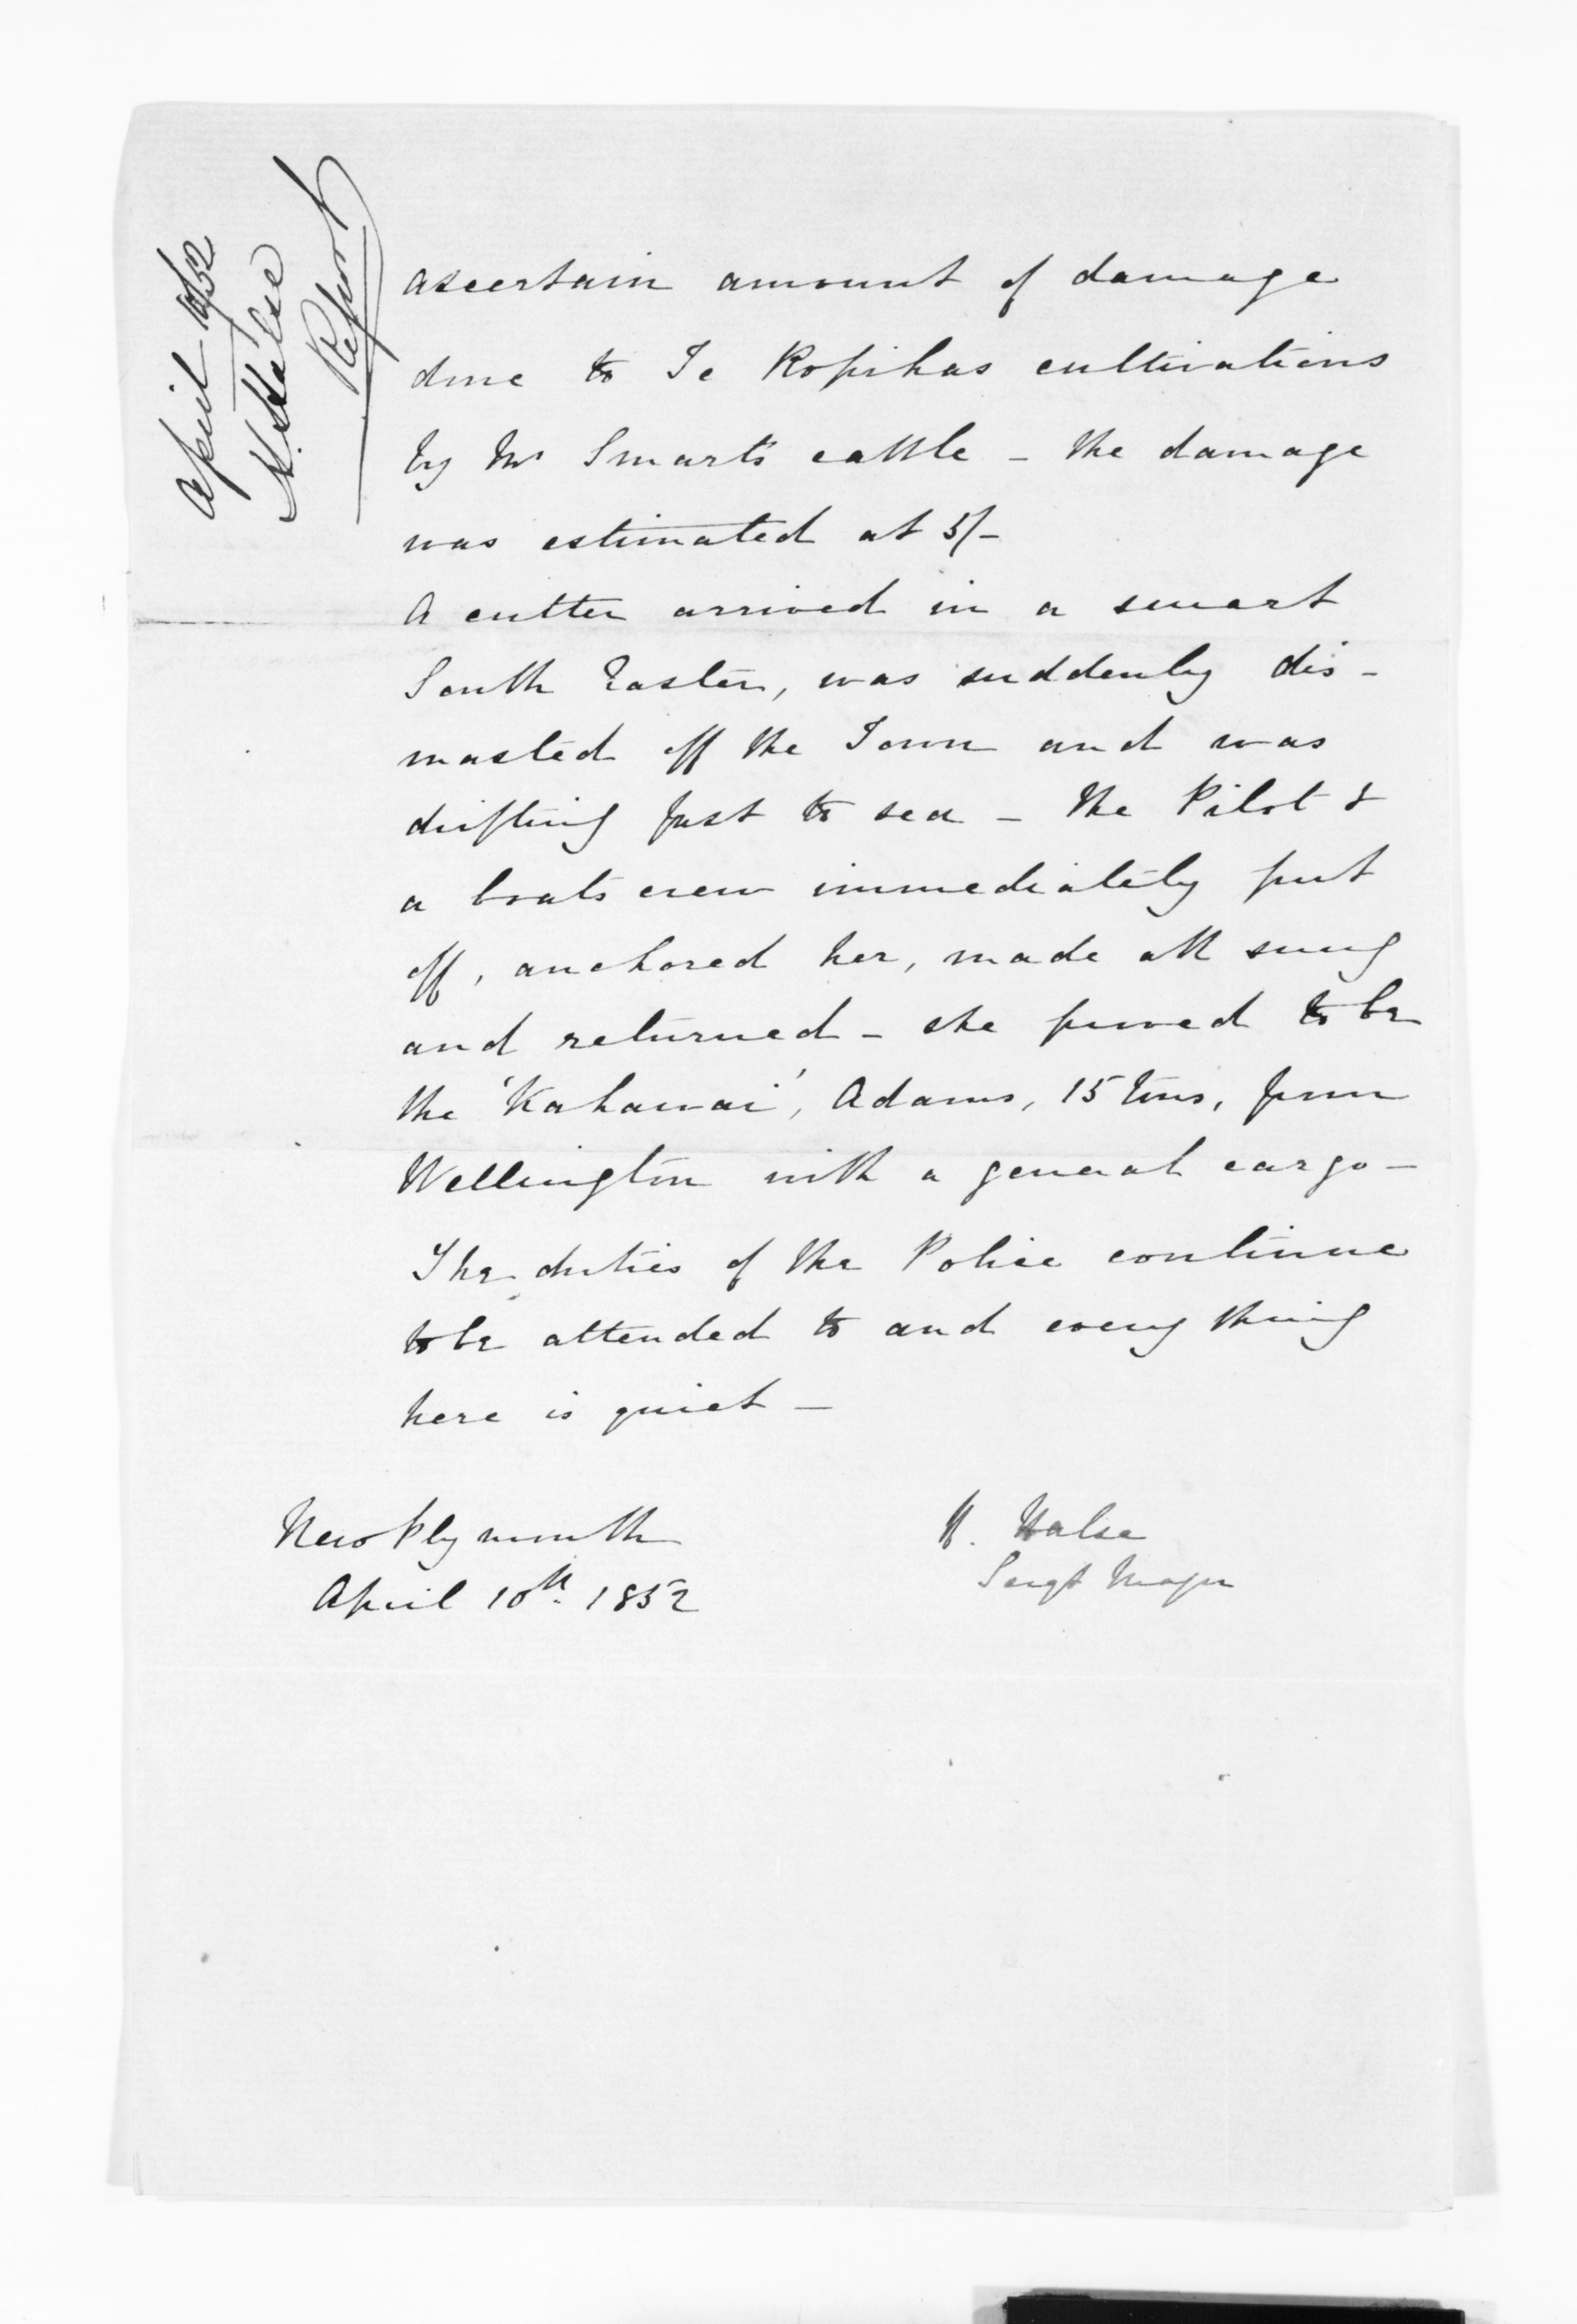 April 10/52
H. Halse
Report
ascertain amount of damage
done to Te Ropihas cultivations
by Mr Smart's cattle - the damage
was estimated at 5/-
A cutter arrived in a smart
South Easter, was suddenly dis-
masted off the Town and was
drifting fast to sea - the Pilot &
a boats crew immediately put
off, anchored her, made all snug
and returned - she proved to be
the 'Kahawai', Adams, 15 tons, from
Wellington with a general cargo -
The duties of the Police continue
to be attended to and every thing
here is quiet -
New Plymouth
April 10th. 1852
H. Halse
Sergt Major